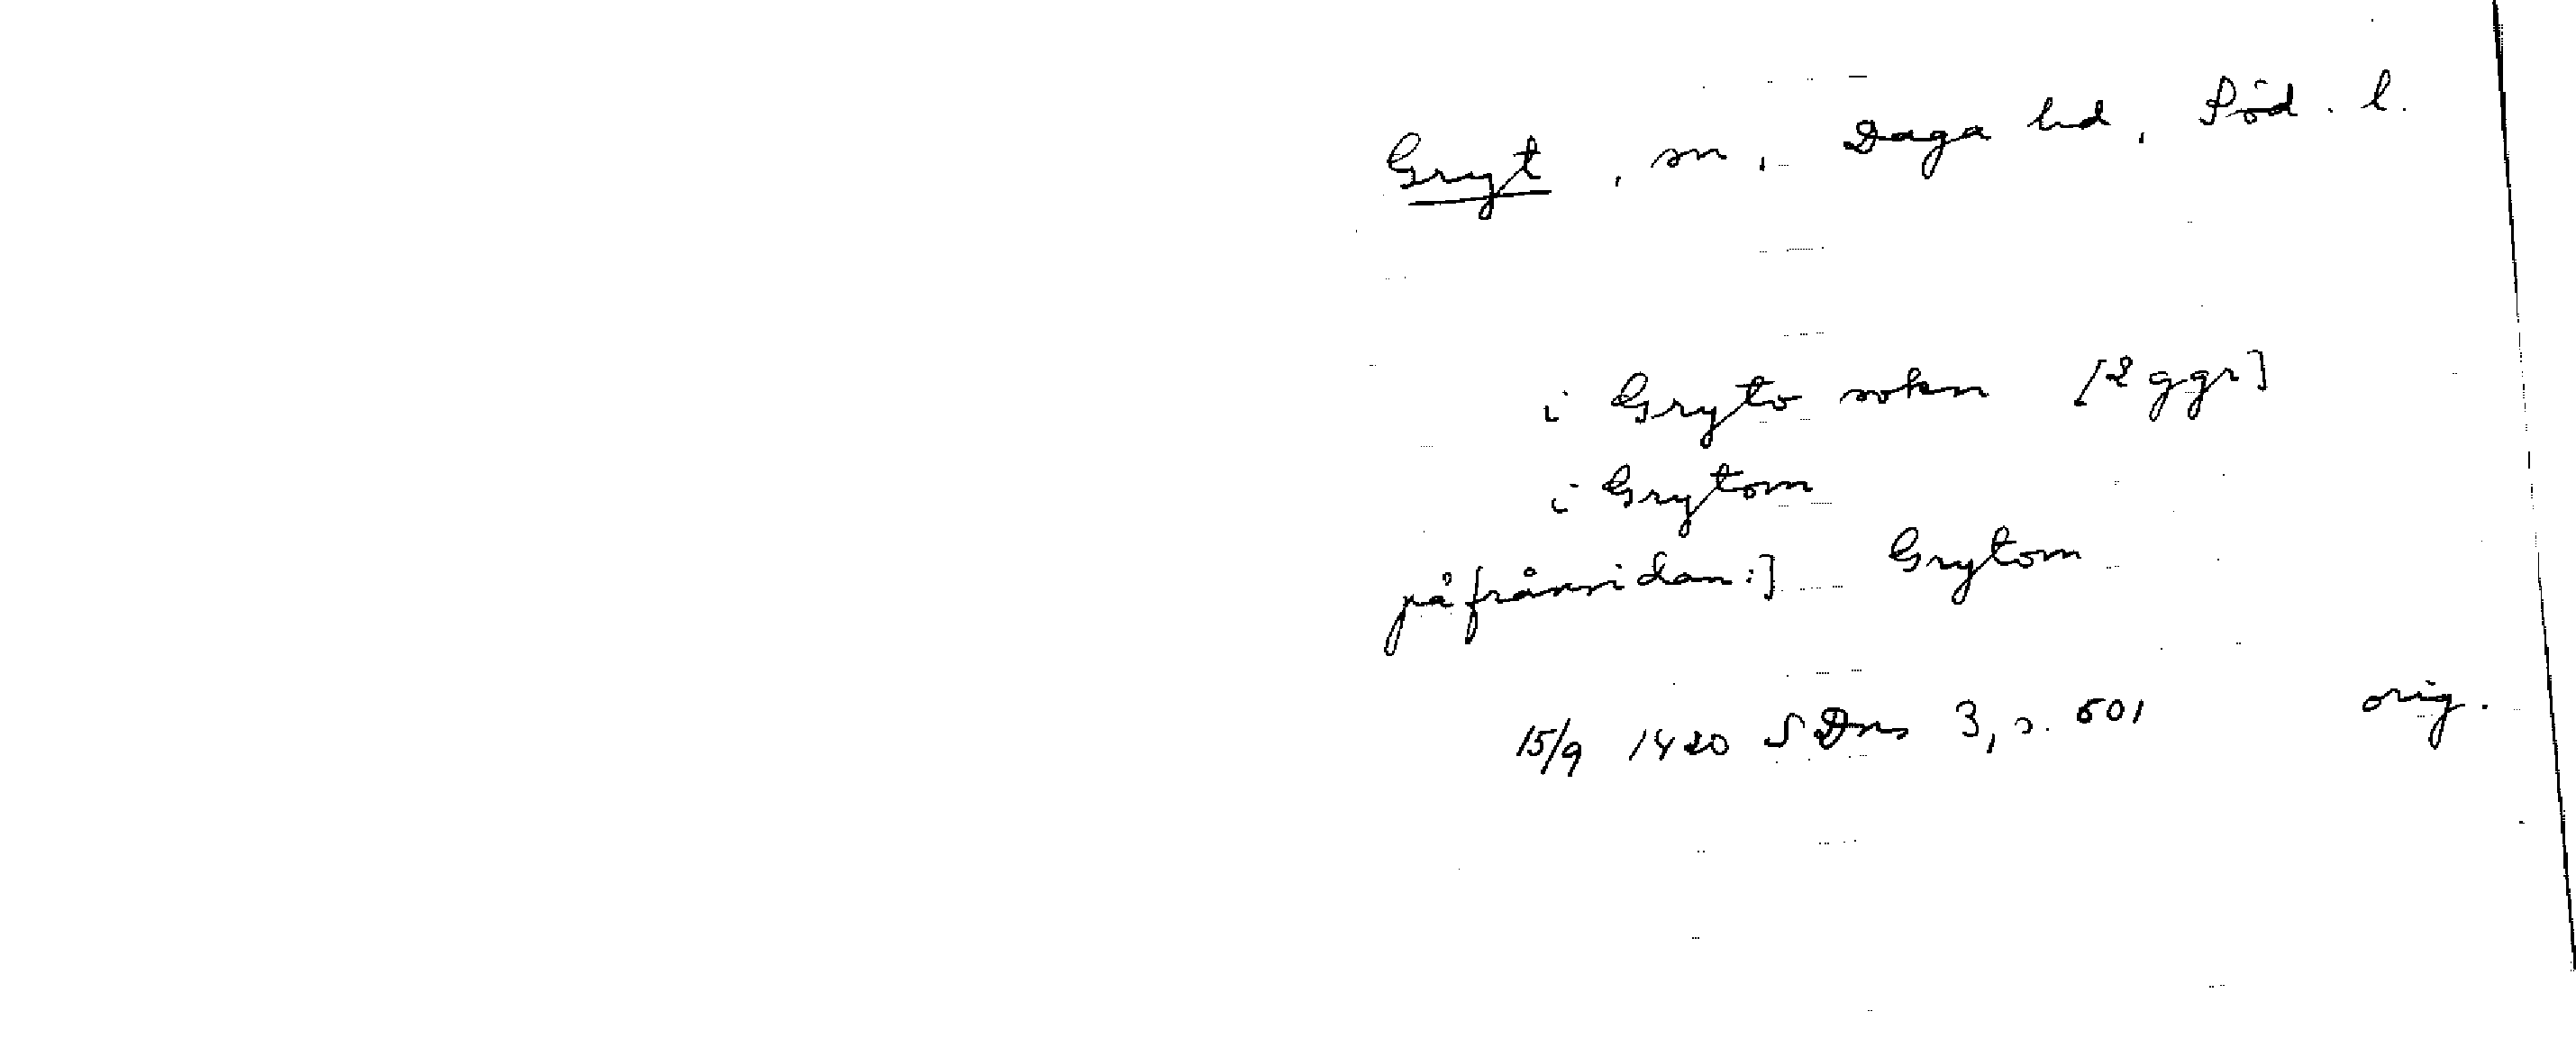 Gryt, sn, Daga hd, Söd. l.
i Gryto sokn [2 ggr]
i Grytom
på frånsidan:] Grytom
15/9 1420 SDns 3, s. 601 orig.